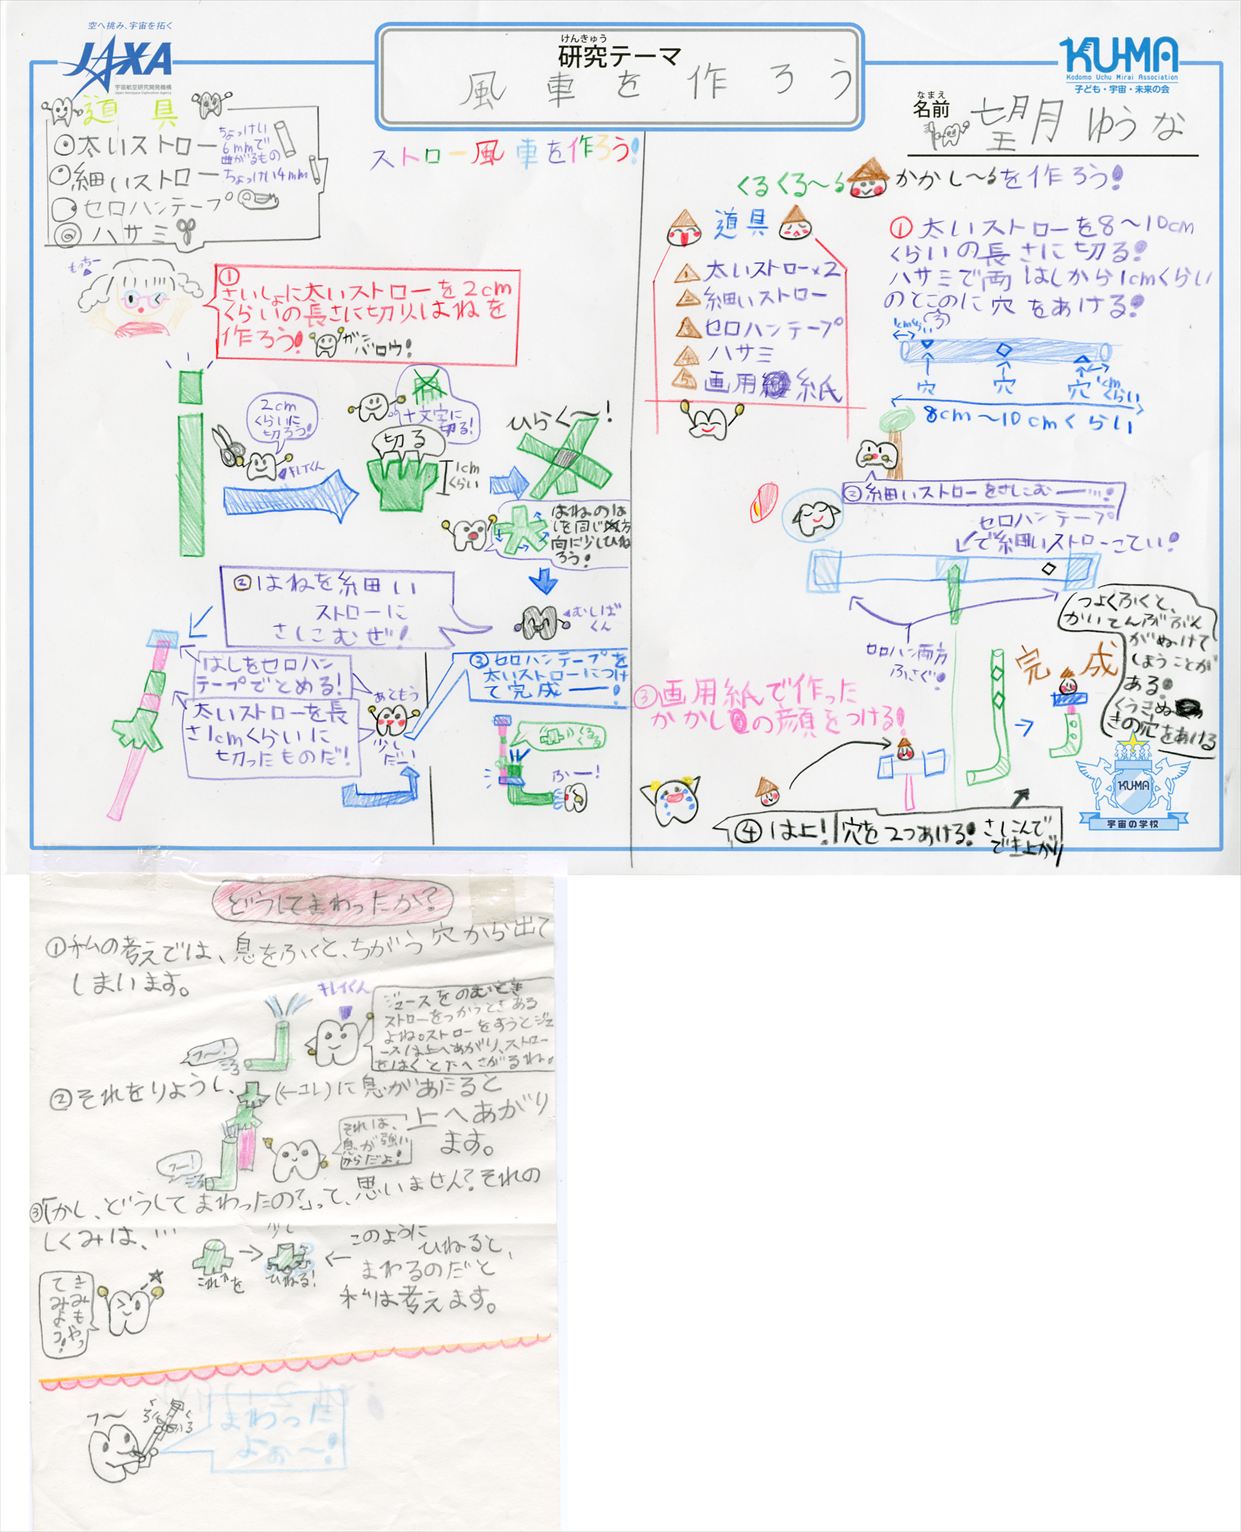 空へ挑み、宇宙を拓く
JAXA
宇宙航空研究開発機構
Japan Aerospace Exploration Agency
けんきゅう
研究テーマ
風車を作ろう
KU-MA
Kodomo Uchu Mirai Association
子ども・宇宙・未来の会
なまえ
名前
望月 ゆうな
道具
太いストロー
ちょっけい
6mmで
曲がるもの
細いストロー
ちょっけい4mm
セロハンテープ
ハサミ
ストロー風車を作ろう!
もっちー
①
さいしょに太いストローを2cm
くらいの長さに切りはねを
作ろう!
ガンバロウ!
2cm
くらいに
切ろう!
キレイくん
十文字に
切る!
切る
1cm
くらい
ひらく〜!
はねのは
しを同じ方
向に少しひね
ろう!
②はねを細い
ストローに
さしこむぜ!
むしば
くん
はしをセロハン
テープでとめる!
太いストローを長
さ1cmくらいに
切ったものだ!
あともう
少し
だー
③セロハンテープを
太いストローにつけ
て完成ー!
くるくる
ふー!
くるくる〜るかかし〜るを作ろう!
道具
1 太いストロー×2
2 細いストロー
3 セロハンテープ
4 ハサミ
5 画用紙
①太いストローを8〜10cm
くらいの長さに切る!
ハサミで両はしから1cmくらい
のとこのに穴をあける!
1cmくらい
穴
穴
穴
1cm
くらい
8cm〜10cmくらい
②細いストローをさしこむー!
セロハンテープ
で細いストローこてい!
セロハン両方
ふさぐ!
つよくふくと、
かいてんぶぶん
がぬけて
しまうことが
ある。
くうきぬ
きの穴をあける
③画用紙で作った
かかしの顔をつける!
完成
④は上!穴を2つあける!さしこんで
でき上がり
KU-MA
宇宙の学校
どうしてまわったか?
①私の考えでは、息をふくと、ちがう穴から出て
しまいます。
キレイくん
フー!
ジュースをのむとき
ストローをつかうときある
よね。ストローをすうとジュ
ースは上へあがり、ストロー
をはくと下へさがるね。
②それをりようし、(←コレ)に息があたると
上へあがり
ます。
フー!
それは、
息が強い
からだよ!
③「しかし、どうしてまわったの?」って、思いません?それの
しくみは、…
これを
少し
ひねる!
このように
ひねると、
まわるのだと
私は考えます。
きみもやっ
てみよう!
フ〜
くるくる
まわった
よぉ〜!